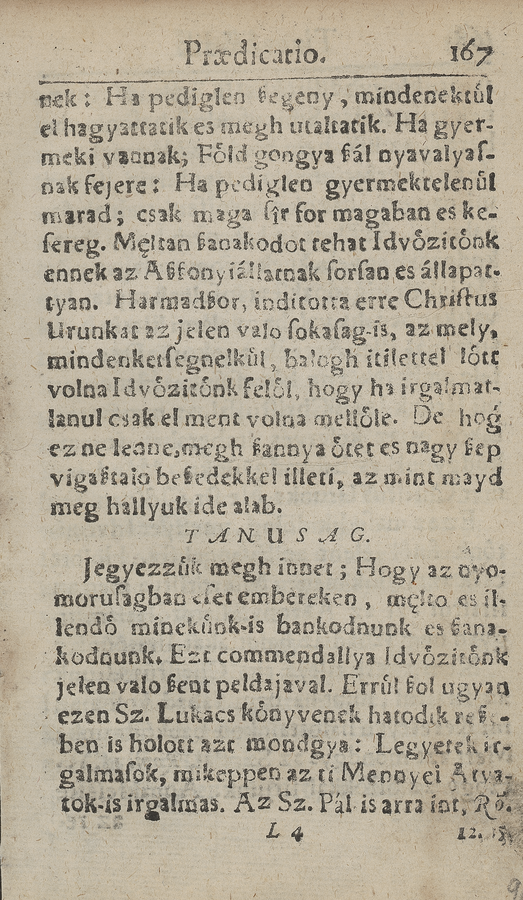 Prædicatio. 167
nek: Ha pediglen ßegeny, mindenektůl
el hagyattatik es megh utaltatik. Ha gyer-
meki vannak; Főld gongya ßál nyavalyaſ-
nak fejere: Ha pediglen gyermektelenůl
marad; csak maga ſir for magaban es ke-
ſereg. Męltan ßanakodot tehat Idvőzitőnk
ennek az Aßßonyiállatnak ſorſan es állapat-
tyan. Harmadßor, inditotta erre Chriſtus
Urunkat az jelen valo ſokaſag-is, az mely,
mindenketſegnelkůl, balogh itilettel lőtt
volna Idvőzitőnk felől, hogy ha irgalmat-
lanul csak el ment volna mellőle. De hog̃
ez ne lenne, megh ßannya őtet es nagy ßep
vigaßtalo beßedekkel illeti, az mint mayd
meg hallyuk ide alab.
TANUSAG.
Jegyezzůk megh innet; Hogy az nyo-
moruſagban eſet embereken, męlto es il-
lendő minekůnk-is bankodnunk es ßana-
kodnunk. Ezt commendallya Idvőzitőnk
jelen valo ßent peldajaval. Errůl ßol ugyan
ezen Sz. Lukacs kőnyvenek hatodik reße-
ben is holott azt mondgya: Legyetek ir-
galmaſok, mikeppen az ti Mennyei Atya-
tok-is irgalmas. Az Sz. Pál is arra int, Rő.
L 4 12. 15